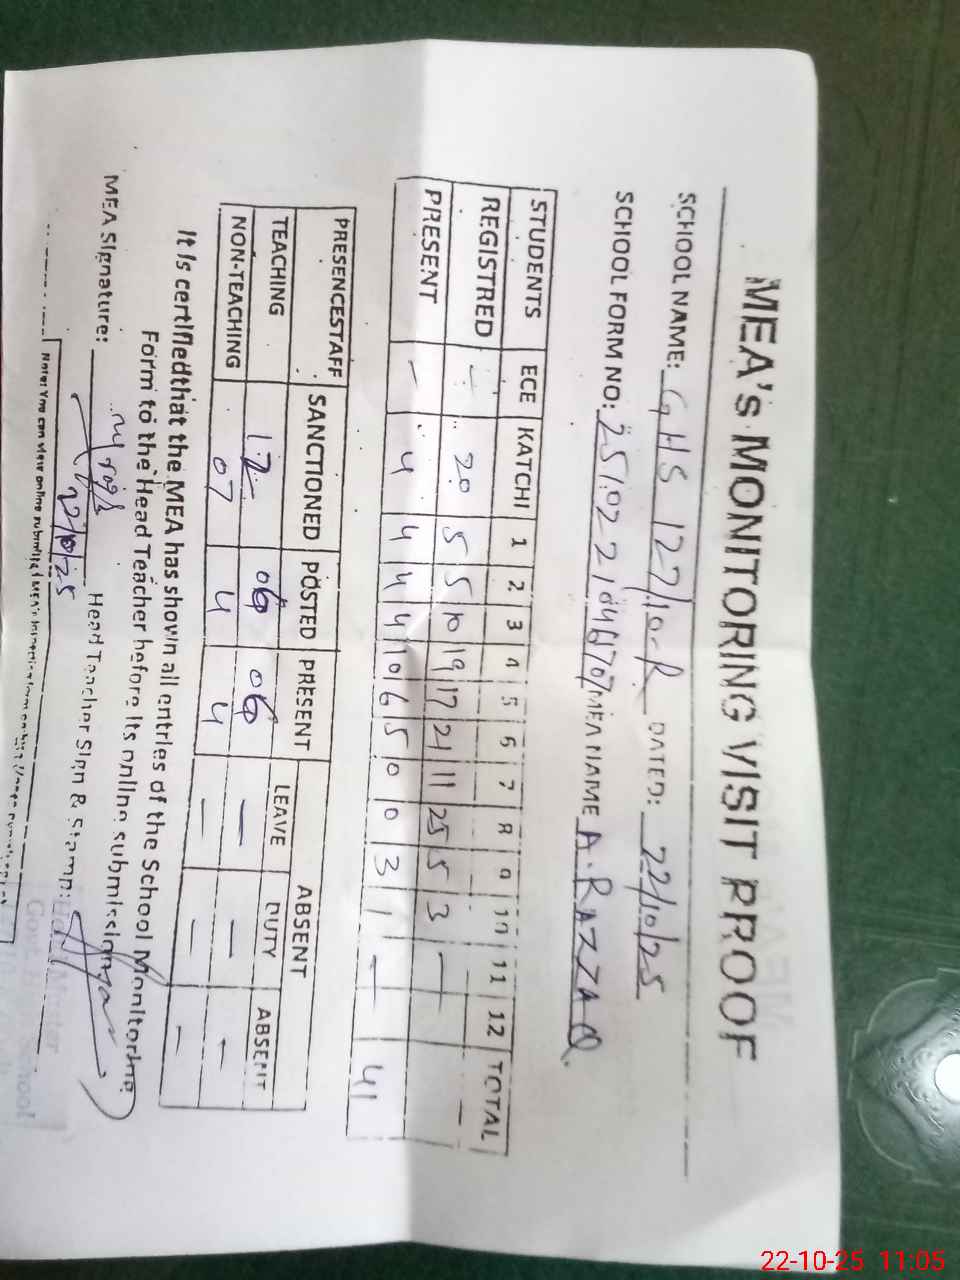 MEA's MONITORING VISIT PROOF
SCHOOL NAME: GHS 127/10-R DATED: 22/10/25
SCHOOL FORM NO: MEA NAME A.RAZZAQ
STUDENTS ECE KATCHI 1 2 3 4 5 6 7 8 9 10 11 12 TOTAL
REGISTRED - 20 5 5 10 19 17 21 11 25 5 3 - -
PRESENT - 4 4 4 4 10 6 5 0 0 3 1 - - 41
PRESENCESTAFF SANCTIONED POSTED PRESENT ABSENT
LEAVE DUTY ABSENT
TEACHING 12 06 06 - - -
NON-TEACHING 07 4 4 - - -
It is certifiedthat the MEA has shown all entries of the School Monitoring
Form to the Head Teacher before its online submission.
MEA Signature: 22/10/25 Head Teacher Sign & Stamp:
Note: You can view online submitted MEA's
Master
Govt. School
22-10-25 11:05